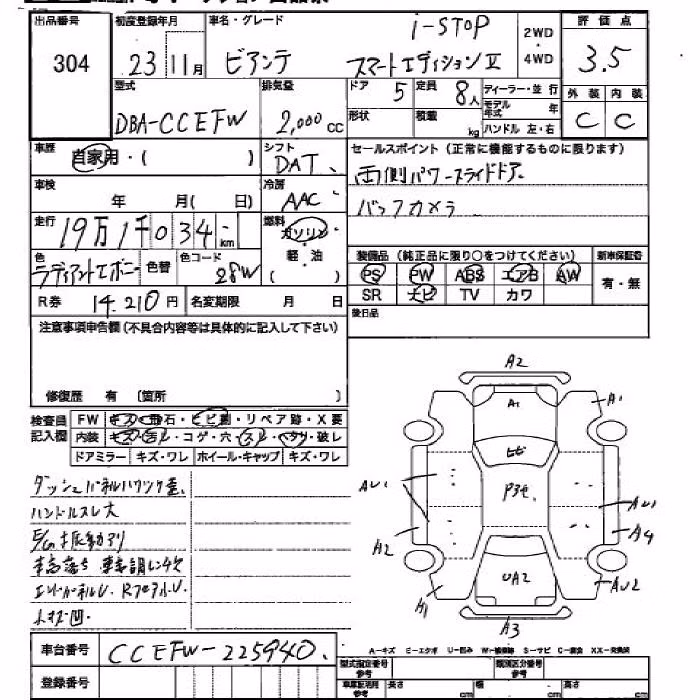 出品番号 初度登録年月 車名・グレード 評価点
304 23 11月 ビアンテ i-STOP スマートエディションⅡ 2WD・4WD 3.5
型式 排気量 ドア 5 定員 8人 ディーラー・並行 外装 内装
DBA-CCEFW 2,000cc 形状 積載 kg モデル年式 年 ハンドル 左・右 C C
車歴 自家用・( ) シフト DAT セールスポイント(正常に機能するものに限ります)
車検 年 月( 日) 冷房 AAC 両側パワースライドドア
走行 19万1千034km 燃料 ガソリン・軽・油( ) バックカメラ
色 ラディアントエボニー 色替 色コード 28W 装備品(純正品に限り○をつけてください) 新車保証書
PS PW ABS エアB AW 有・無
R券 14,210円 名変期限 月 日 SR ナビ TV カワ
後日品
注意事項申告欄(不具合内容等は具体的に記入して下さい)
修復歴 有 〔箇所 〕
検査員記入欄 FW キズ・飛石・ヒビ割・リペア跡・X要
内装 キズ・ヨゴレ・コゲ・穴・スレ・ヘタリ・破レ
ドアミラー キズ・ワレ ホイール・キャップ キズ・ワレ
ハンドルスレ大
E/G振動アリ
A2
A1 A1
ヒビ
AU1 P3セ. AU1
A2 A4
UA2 AU2
A1
A3
車台番号 CCEFW-225940
A-キズ U-凹み S-サビ C-腐食 XX-交換済
登録番号 型式指定番号 参考 類別区分番号 参考
車庫証明用 参考 長さ cm 幅 cm 高さ cm